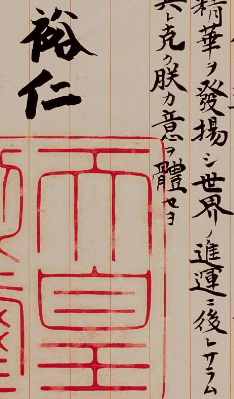 精華ヲ發揚シ世界ノ進運ニ後レサラム
其レ克ク朕カ意ヲ體セヨ
裕仁
天皇